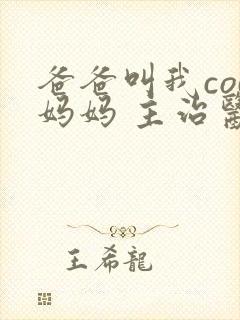 爸爸叫我co
妈妈 主治醫
王希龍